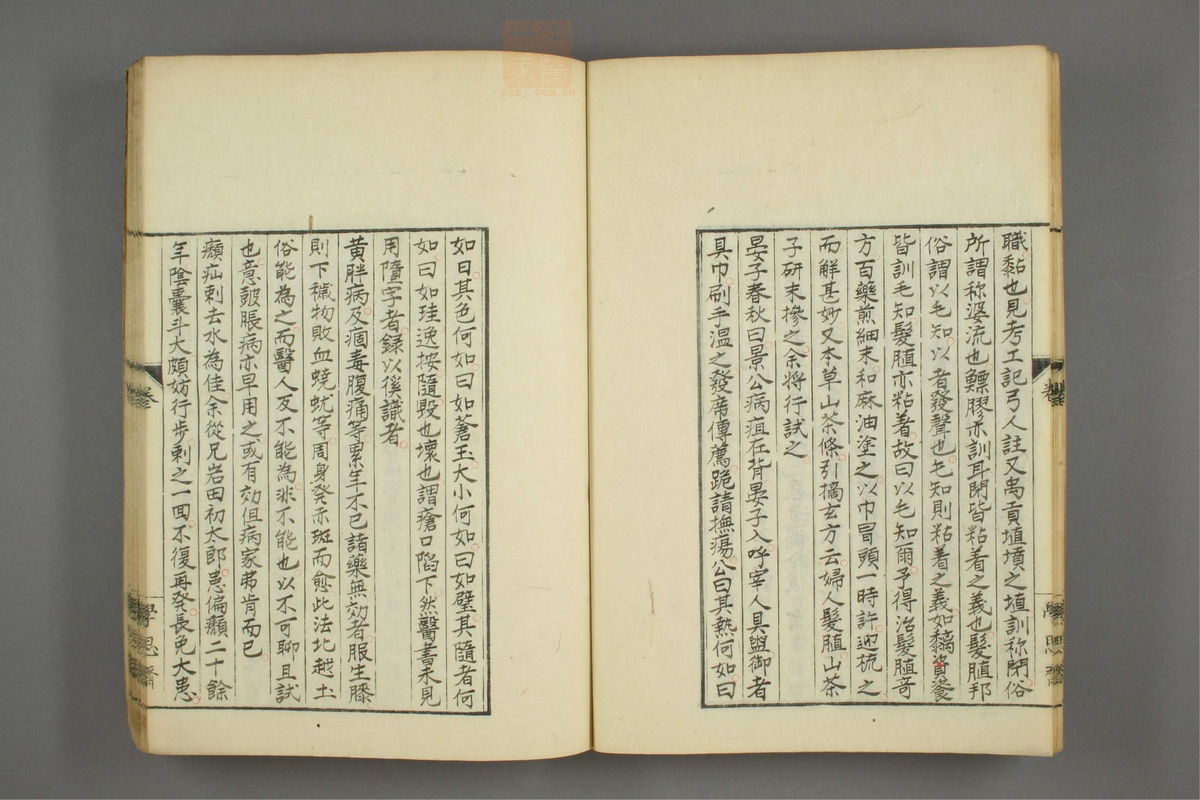 職黏也見考工記弓人註又禹貢埴墳之埴訓称閉俗
所謂称婆流也鰾膠亦訓耳閉皆粘着之義也髮脜邦
俗謂以毛知以者發聲也毛知則粘着之義如黐資餈
皆訓毛知髮脜亦粘着故曰以毛知爾予得治髮脜奇
方百藥煎細末和麻油塗之以巾冒頭一時許迎梳之
而解甚妙又本草山茶條引摘玄方云婦人髮脜山茶
子研末摻之余将行試之
晏子春秋曰景公病疽在背晏子入呼宰人具盥御者
具巾刷手溫之發席傅薦跪請撫瘍公曰其熱何如曰
如日其色何如曰如蒼玉大小何如曰如璧其隨者何
如曰如珪逸按隨毀也壞也謂瘡口陷下然醫書未見
用隨字者録以徯識者
黄胖病及痼毒腹痛等累年不已諸藥無効者服生縢
則下穢物敗血蟯蚘等周身癸赤斑而愈此法北越土
俗能為之而醫人反不能為非不能也以不可聊且試
也意皷脹病亦早用之或有効但病家弗肯而已
癩疝刺去水為佳余從兄岩田初太郎患偏癩二十餘
年陰囊斗大頗妨行歩刺之一囬不復再癸長免大患
卷
學思齋
卷
學思齋
zysj.com.cn